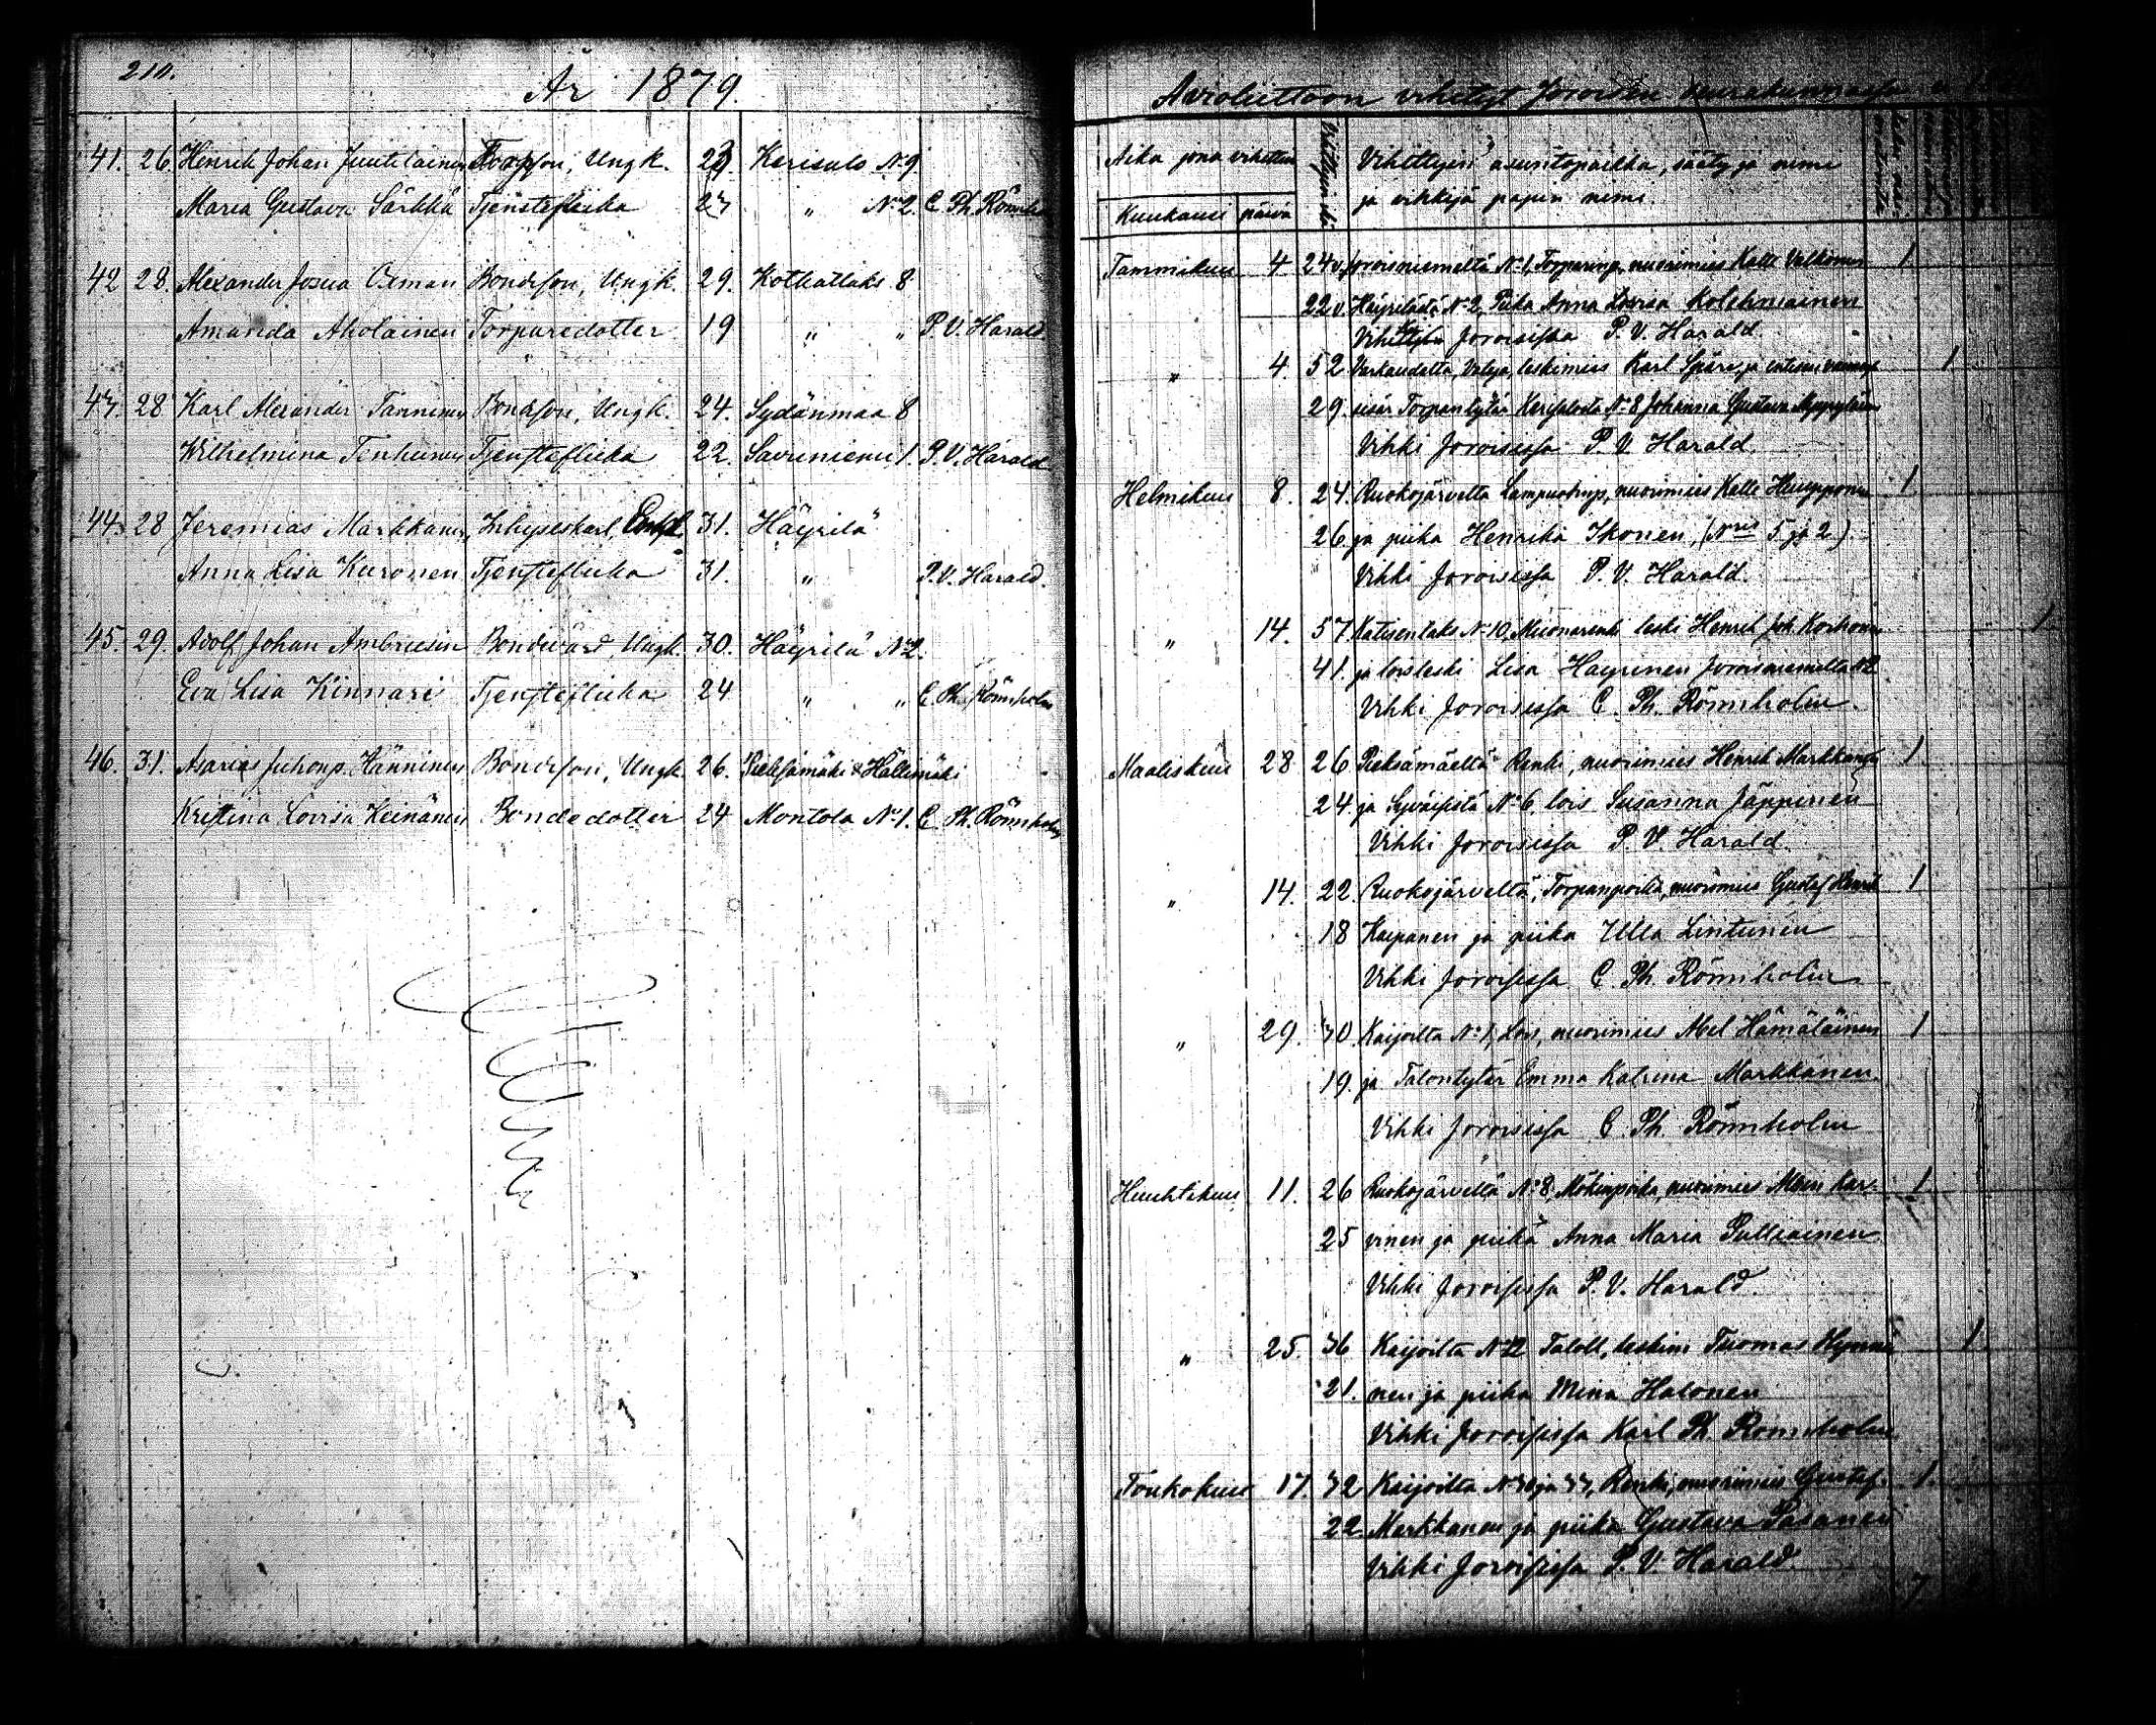 210.
År 1879.
41. 26. Henrik Johan Juutilainen Torpson, Ungk. 23. Kerisalo N:o 9
Maria Gustava Särkkä Tjensteflicka 23 " N:o 2. C. Ph. Römholm
42 28. Alexander Josua Oxman Bondeson, Ungk. 29. Kotkatlaks 8
Amanda Aholainen Torparedotter 19 " " P. V. Harald.
43. 28 Karl Alexander Tanninen Bondson, Ungk. 24. Sydänmaa 8
Wilhelmina Tenhunen Tjensteflicka 22. Savuniemi 1. P. V. Harald
44. 28 Jeremias Markkanen, Inhyseskarl, Enkl. 31. Häyrilä
Anna Lisa Kuronen Tjensteflicka 31. " P. V. Harald.
45. 29. Adolf Johan Ambrusin Bondevärd, Ungk. 30. Häyrilä N:o 2.
Eva Lisa Kinnari Tjensteflicka 24 " " C. Ph. Römholm
46. 31. Asarias Juhonp. Hänninen Bondeson, Ungk. 26. Pieksämäki & Hällinmäki
Kristina Lovisa Keinänen Bondedotter 24 Montola N:o 1. C. Ph. Römholm
Avioliittoon vihityt Joroisten seurakunnassa
Aika jona vihittiin
Kuukausi päivä
Vihittyin asuntopaikka, sääty ja nimi
ja vihkijä papin nimi.
Tammikuu 4 24 v. Joroisniemeltä N:o 1, Torparinp. nuorimies Kalle Valkonen 1
22 v. Häyrilästä N:o 2, Piika Anna Lovisa Kolehmainen
Vihittyin Joroisissa P. V. Harald.
" 4. 52. Varkaudelta, leskimies Karl Spåre, ja entisen vaimon 1
29. sisar Torpantytär Kerisalosta N:o 8 Johanna Gustava
Vihki Joroisissa P. V. Harald.
Helmikuu 8. 24. Ruokojärveltä Lampuotinp, nuorimies Kalle Huupponen 1
26. ja piika Henrika Ikonen, (N:ris 5 ja 2).
Vihki Joroisissa P. V. Harald.
" 14. 57. Katisenlaks N:o 10, Muonarenki leski Henrik Joh. Korhonen 1
41. ja loisleski Lisa Hayrinen Joroisniemeltä N:o 2
Vihki Joroisissa C. Ph. Römholm.
Maaliskuu 28 26 Pieksämäeltä Renki, nuorimies Henrik Markkanen 1
24 ja Syväisistä N:o 6 lois Susanna Jäppinen
Vihki Joroisissa P. V. Harald.
" 14. 22. Ruokojärveltä, Torpanpoika, nuorimies Gustaf Henrik 1
18 Kaipanen ja piika Ulla Lintunen
Vihki Joroisissa C. Ph. Römholm
" 29. 30. Kaijoilta N:o 1, Lois, nuorimies Abel Hämäläinen 1
19. ja Talontytär Emma Katrina Markkanen.
Vihki Joroisissa C. Ph. Römholm
Huuhtikuu 11. 26 Ruokojärveltä N:o 8, Mökinpoika, nuorimies Kar- 1
25 vinen ja piika Anna Maria Pulliainen
Vihki Joroisissa P. V. Harald.
" 25. 36 Kaijoilta N:o 12 Taloll, leskim Tuomas Hynni 1
21. nen ja piika Mina Halonen
Vihki Joroisissa Karl Ph. Römholm
Toukokuu 17. 32 Kaijoilta N:o 30 ja 33, Renki, nuorimies Gustaf 1
22. Markkanen ja piika Gustava Pasanen
Vihki Joroisissa P. V. Harald
7.